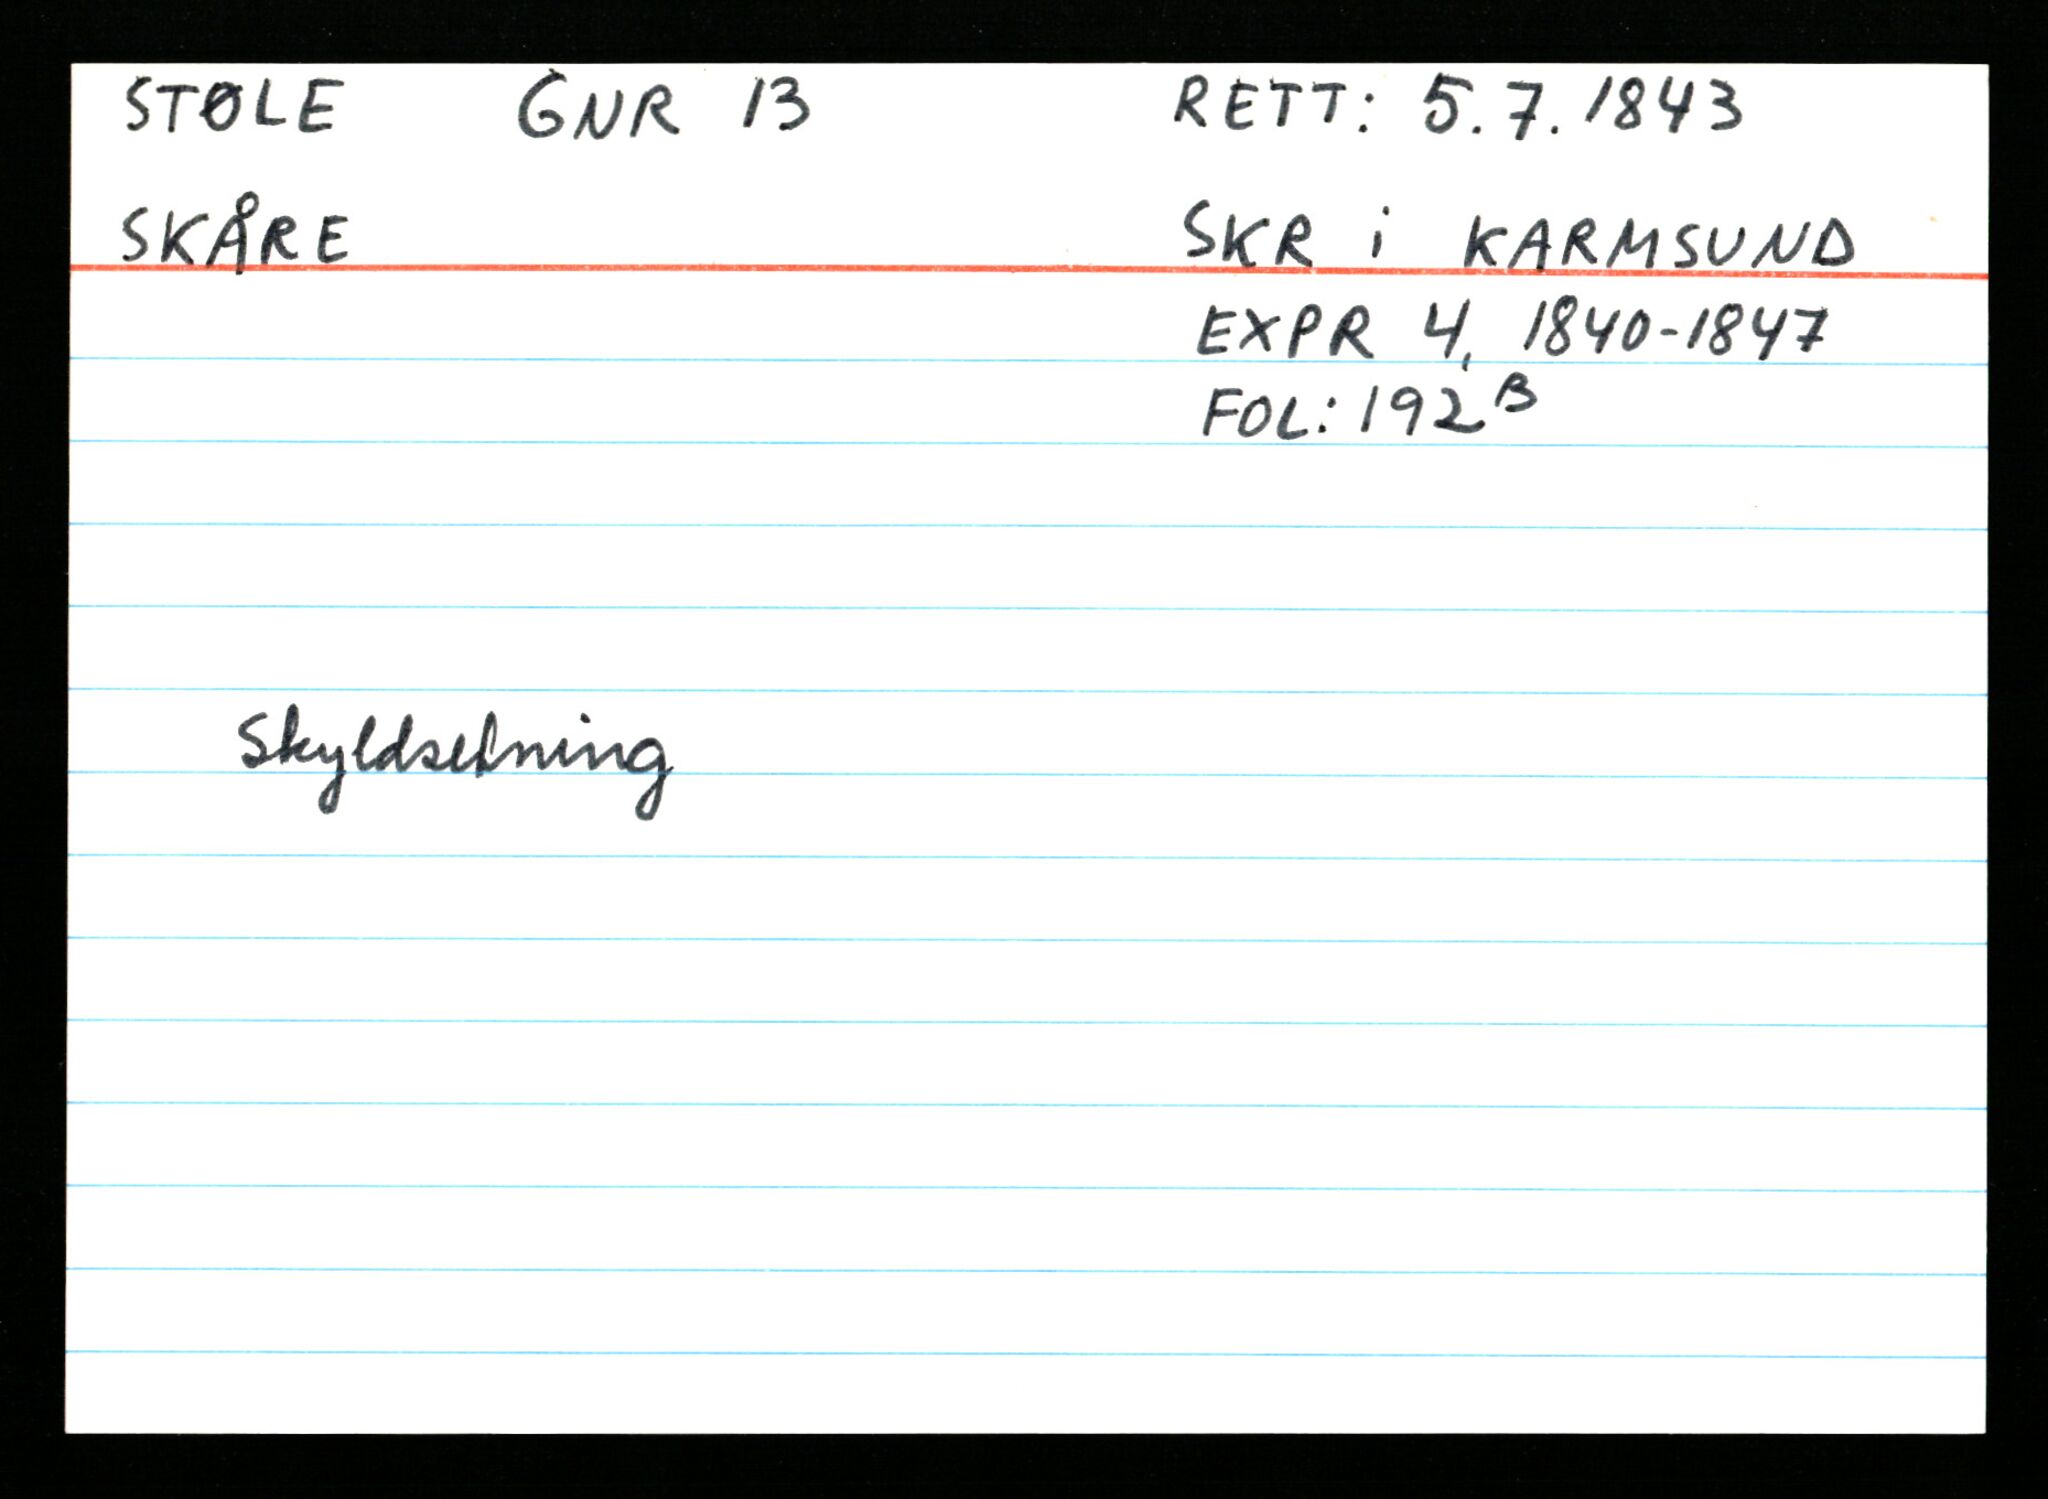 STØLE GNR 13 RETT: 5.7.1843
SKÅRE SKR i KARMSUND
EXPR 4, 1840-1847
FOL: 192B
Skyldsetning